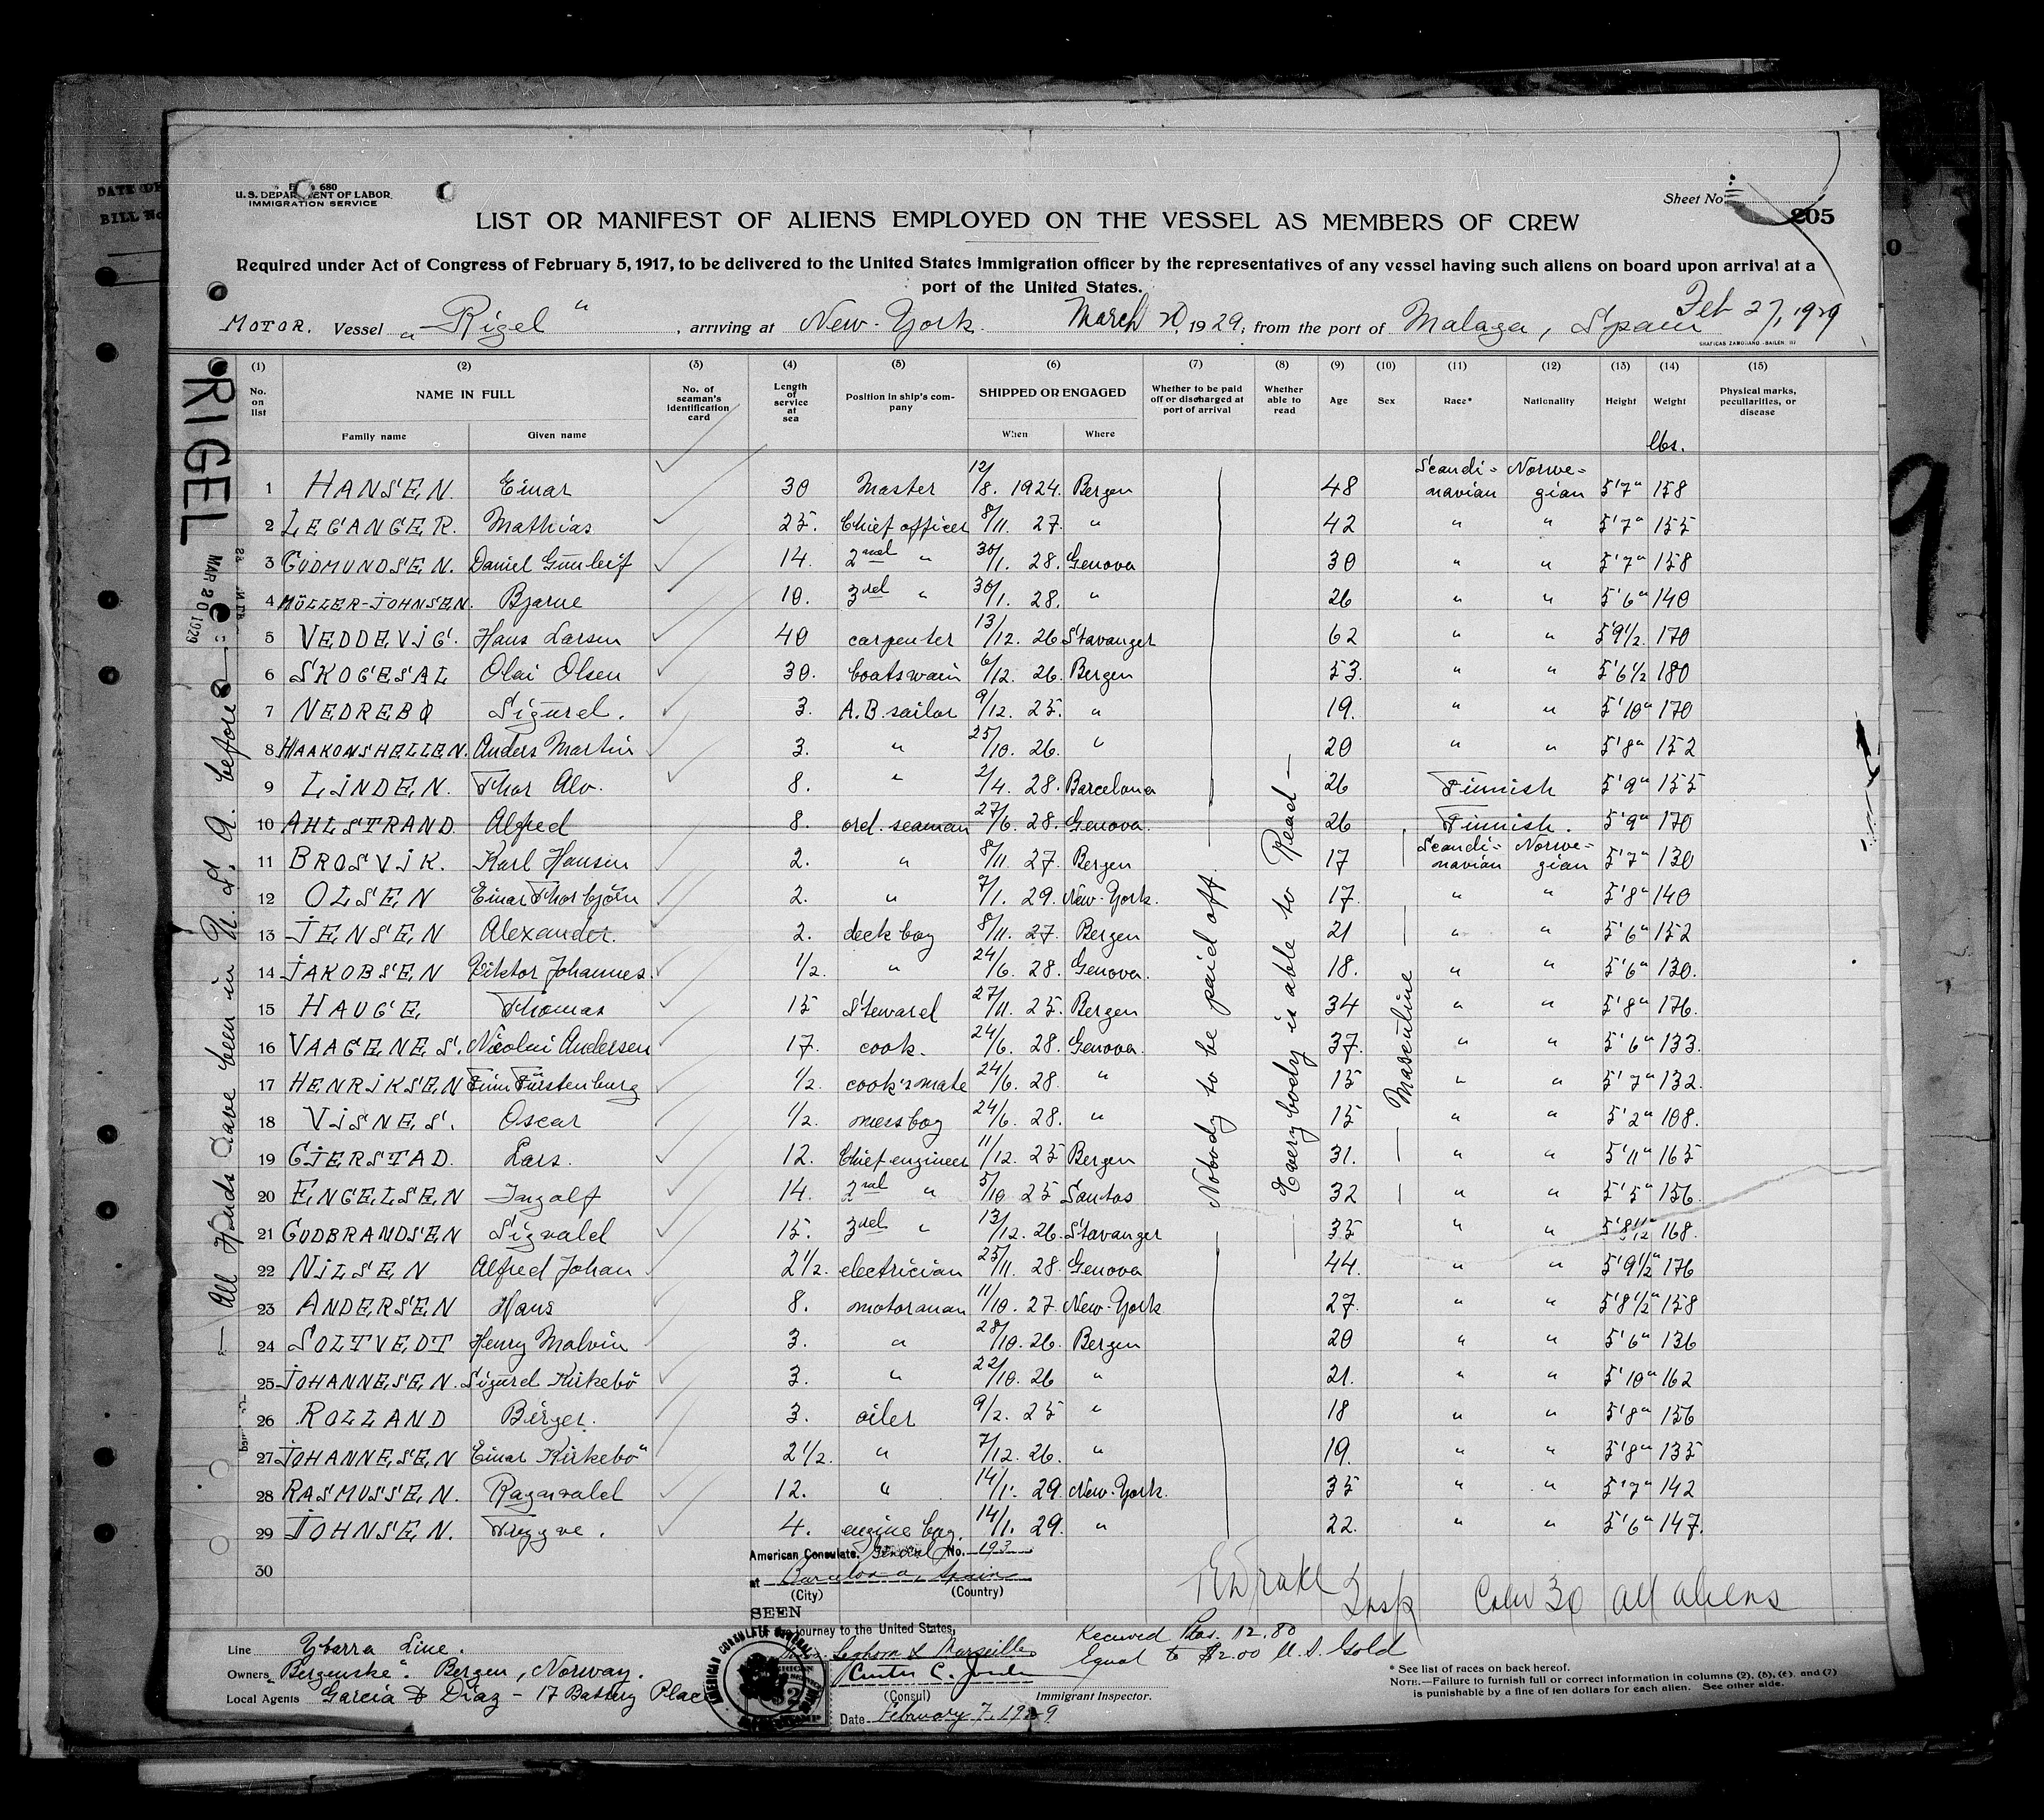 DATE OF
BILL No
Form 680
U.S. DEPARTMENT OF LABOR
IMMIGRATION SERVICE
Sheet No.
205
LIST OR MANIFEST OF ALIENS EMPLOYED ON THE VESSEL AS MEMBERS OF CREW
Required under Act of Congress of February 5, 1917, to be delivered to the United States immigration officer by the representatives of any vessel having such aliens on board upon arrival at a
port of the United States.
MOTOR. Vessel „Rigel“, arriving at New-York. March 20, 1929, from the port of Malaga, Spain Feb 27, 1929
GRAFICAS ZAMORANO - BAILEN, 117
(1) (2) (3) (4) (5) (6) (7) (8) (9) (10) (11) (12) (13) (14) (15)
No. on list NAME IN FULL No. of seaman's identification card Length of service at sea Position in ship's company SHIPPED OR ENGAGED Whether to be paid off or discharged at port of arrival Whether able to read Age Sex Race* Nationality Height Weight Physical marks, peculiarities, or disease
Family name Given name When Where lbs.
1 HANSEN. Einar 30 Master 12/8. 1924. Bergen 48 Scandi=navian Norwe=gian 5'7" 158
2 LEGANGER. Mathias 25. Chief officer 8/11. 27. " 42 " " 5'7" 155
3 GUDMUNDSEN. Daniel Gunleif 14. 2nd " 30/1. 28. Genova 30 " " 5'7" 158
4 MÖLLER-JOHNSEN. Bjarne 10. 3rd " 30/1. 28. " 26 " " 5'6" 140
5 VEDDEVIG. Hans Larsen 40 carpenter 13/12. 26 Stavanger 62 " " 5'9 1/2. 170
6 SKOGESAL Olai Olsen 30. boatswain 6/12. 26. Bergen 53. " " 5'6 1/2 180
7 NEDREBØ Sigurd. 3. A.B. sailor 9/12. 25. " 19. " " 5'10" 170
8 HAAKONSHELLEN. Anders Martin 3. " 25/10. 26. " 20 " " 5'8" 152
9 LINDEN. Thor Alv. 8. " 2/4. 28. Barcelona 26 Finnish 5'9" 155
10 AHLSTRAND Alfred 8. ord. seaman 27/6. 28. Genova. 26 Finnish. 5'9" 170
11 BROSVIK. Karl Hansen 2. " 8/11. 27. Bergen 17 Scandi=navian Norwe=gian 5'7" 130
12 OLSEN Einar Thorbjörn 2. " 7/1. 29. New-York. 17. " " 5'8" 140
13 JENSEN Alexander. 2. deck boy 8/11. 27. Bergen 21 " " 5'6" 152
14 JAKOBSEN Viktor Johannes. 1/2. " 24/6. 28. Genova. 18. " " 5'6" 130.
15 HAUGE Thomas 15 Steward 27/11. 25. Bergen 34 " " 5'8" 176.
16 VAAGENES. Nicolai Andersen 17. cook. 24/6. 28. Genova. 37. " " 5'6" 133.
17 HENRIKSEN Finn Fürstenburg 1/2. cook's mate 24/6. 28. " 15 " " 5'7" 132.
18 VISNES. Oscar 1/2. messboy 24/6. 28. " 15 " " 5'2" 108.
19 GJERSTAD. Lars. 12. Chief engineer 11/12. 25 Bergen 31. " " 5'11" 165
20 ENGELSEN Ingolf 14. 2nd " 5/10 25 Santos 32 " " 5'5" 156.
21 GUDBRANDSEN Sigvald 15. 3rd " 13/12. 26. Stavanger 35 " " 5'8 1/2" 168.
22 NILSEN Alfred Johan 2 1/2. electrician 25/11. 28. Genova 44. " " 5'9 1/2" 176
23 ANDERSEN Hans 8. motorman 11/10. 27. New-York. 27. " " 5'8 1/2" 158
24 SOLTVEDT Henry Malvin 3. " 28/10. 26. Bergen 20 " " 5'6" 136
25 JOHANNESEN. Sigurd Kirkebö 3. " 22/10. 26 " 21. " " 5'10" 162
26 ROLLAND Birger. 3. oiler 9/2. 25 " 18 " " 5'8" 156
27 JOHANNESEN Einar Kirkebö 2 1/2. " 7/12. 26. " 19. " " 5'8" 135
28 RASMUSSEN. Ragnvald 12. " 14/1. 29. New-York. 35 " " 5'7" 142
29 JOHNSEN. Trygve. 4. engine boy. 14/1. 29. " 22. " " 5'6" 147.
30
Nobody to be paid off.
Everybody is able to Read
Masculine
RIGEL
MAR 20 1929
All Hands have been in U.S.A. before
9
American Consulate General No. 193
at Barcelona, Spain
(City) (Country)
SEEN
journey to the United States,
Leghorn & Marseille
Curtis C. Jordan
(Consul) Immigrant Inspector.
Date February 7, 1929
Received Ptas. 12.80
Equal to $2.00 U.S. Gold
Insp
Crew 30 all aliens
Line Ybarra Line.
Owners „Bergenske“. Bergen, Norway.
Local Agents Garcia & Diaz - 17 Battery Place
* See list of races on back hereof.
NOTE.—Failure to furnish full or correct information in columns (2), (5), (6), and (7)
is punishable by a fine of ten dollars for each alien. See other side.